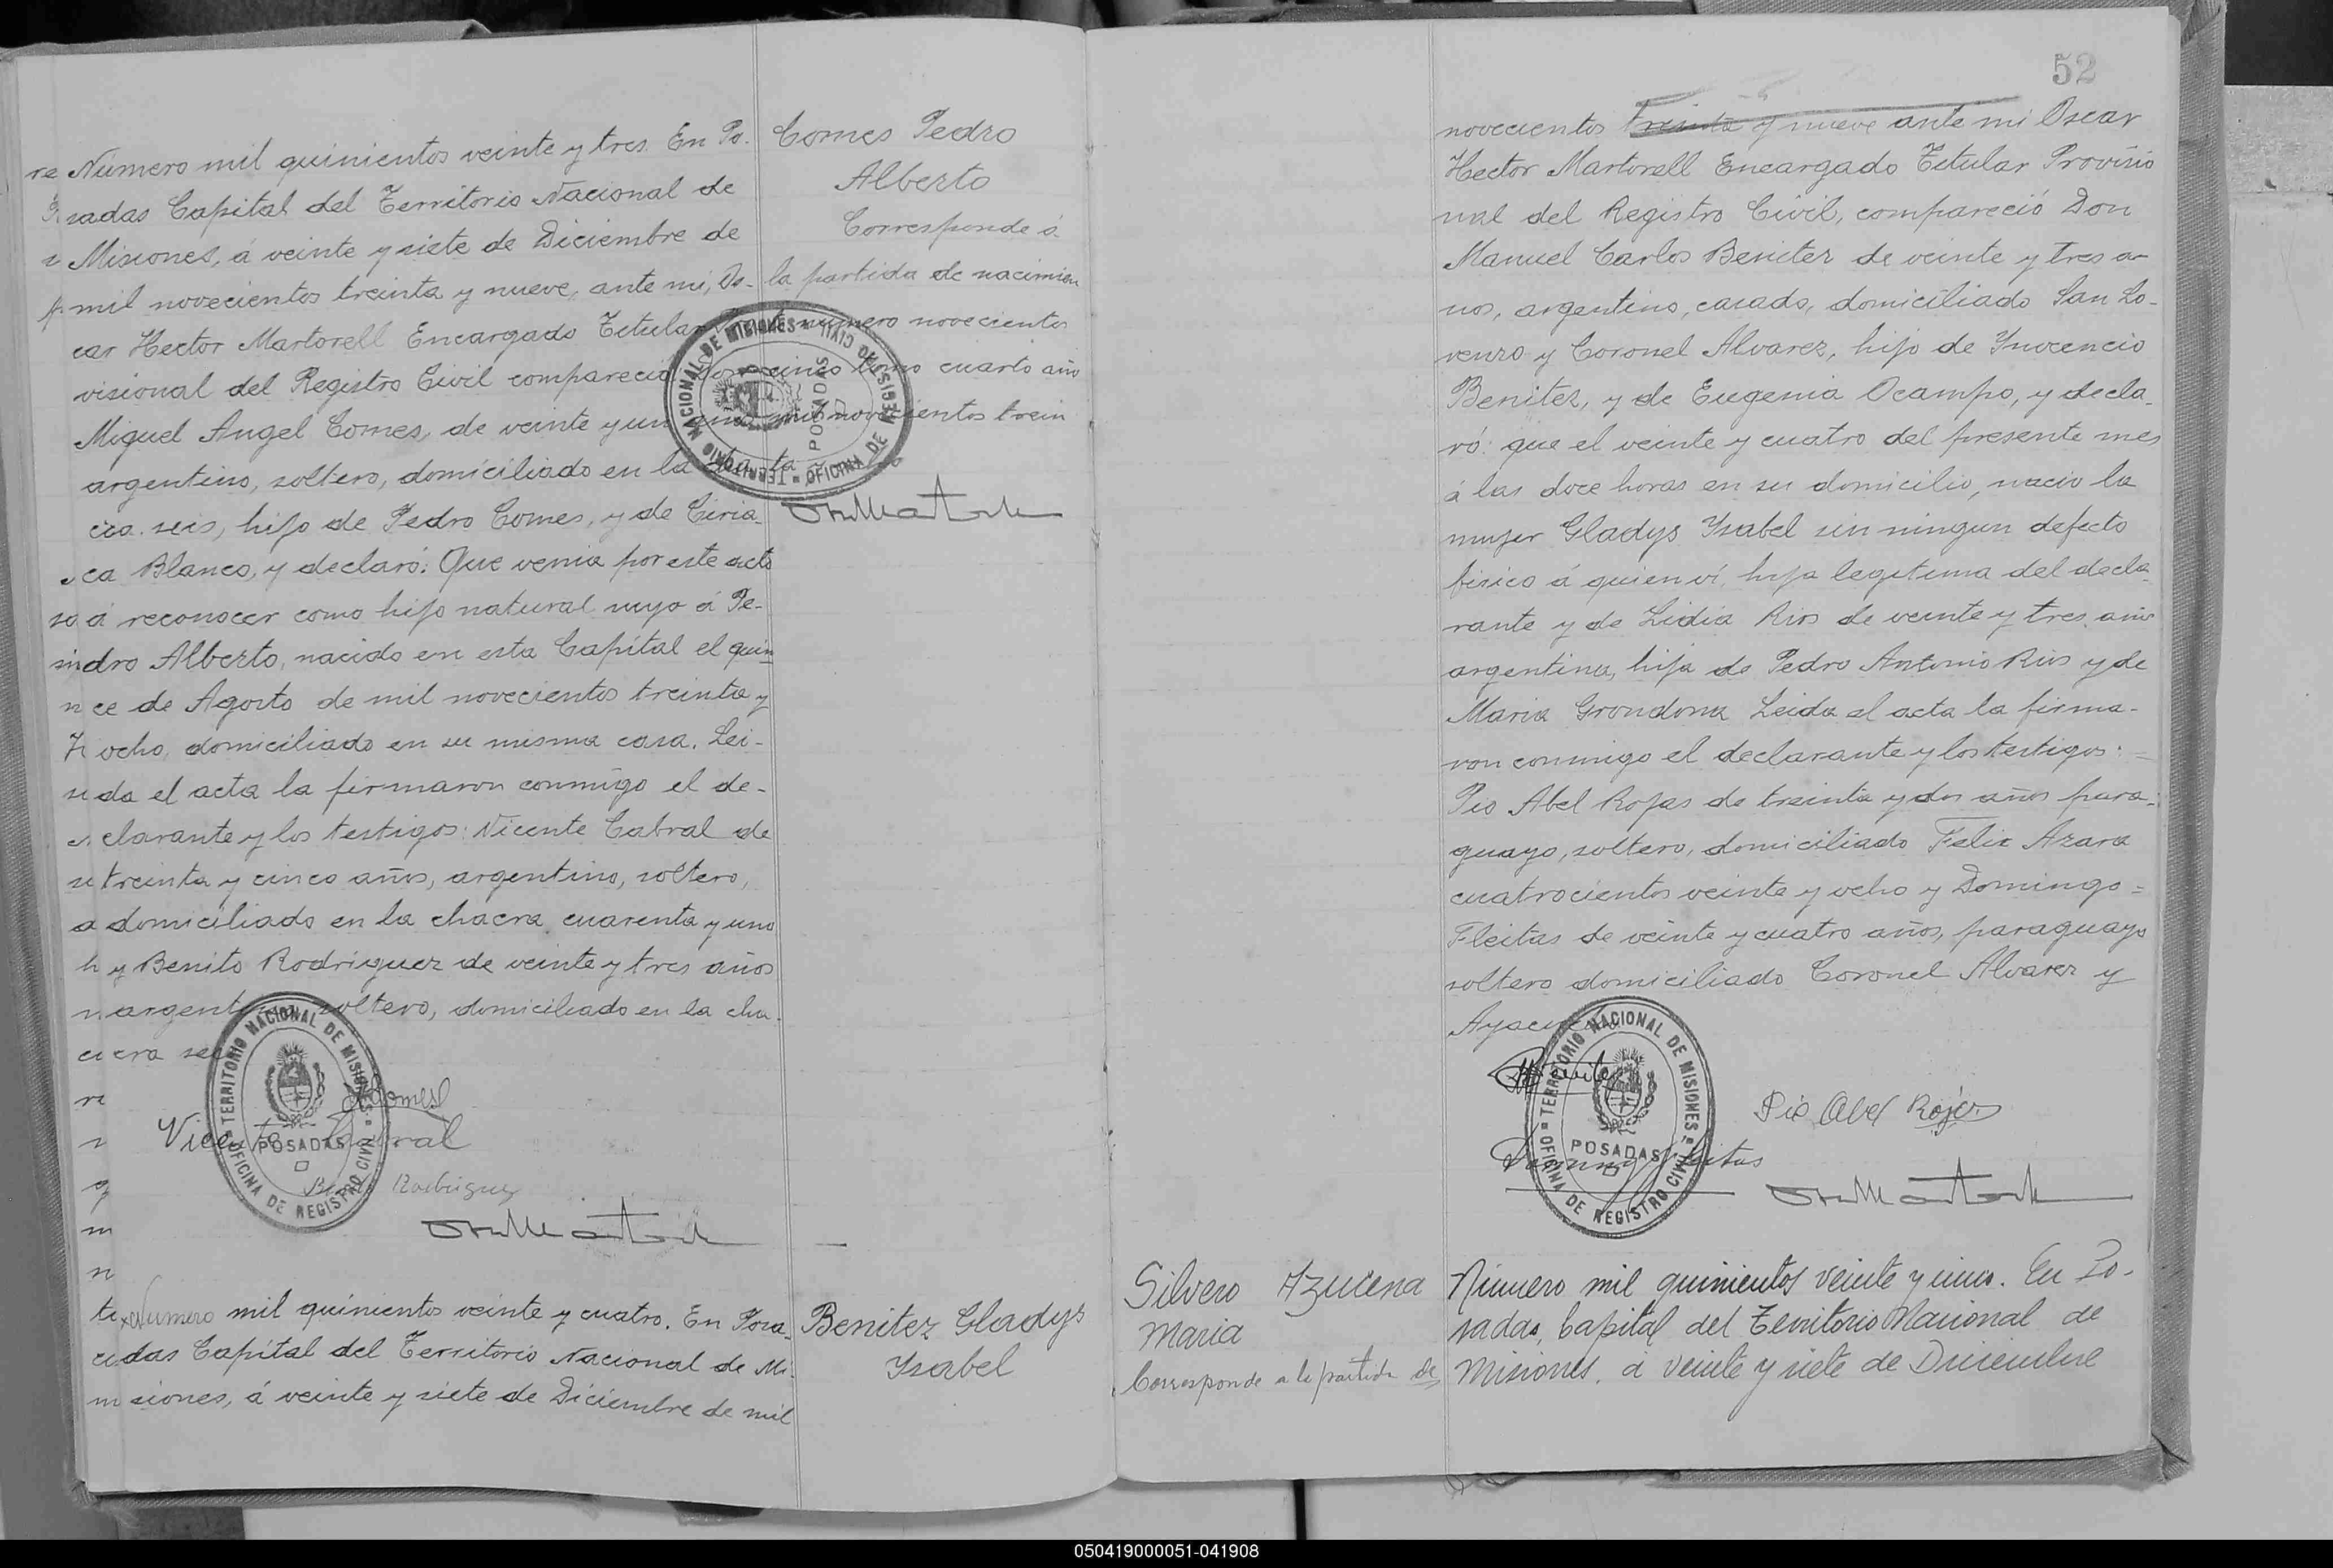 Número mil quinientos veinte y tres. En Po-
sadas Capital del Territorio Nacional de
Misiones, á veinte y siete de Diciembre de
mil novecientos treinta y nueve, ante mi, Os-
car Hector Martorell Encargado Titular
visional del Registro Civil compareció
Miguel Angel Gomes, de veinte y un
argentino, soltero, domiciliado en la cha
cra. seis, hijo de Pedro Gomes, y de Ciria
ca Blanco, y declaró: Que venia por este acto
á reconocer como hijo natural suyo á Pe-
dro Alberto, nacido en esta Capital el quin
ce de Agosto de mil novecientos treinta y
ocho, domiciliado en su misma casa. Lei-
da el acta la firmaron conmigo el de-
clarante y los testigos: Vicente Cabral de
treinta y cinco años, argentino, soltero,
domiciliado en la chacra cuarenta y uno
y Benito Rodriguez de veinte y tres años
argentino, soltero, domiciliado en la cha-
cra seis
Gomes
Vicente Cabral
Rodriguez
TERRITORIO NACIONAL DE MISIONES
POSADAS
OFICINA DE REGISTRO CIVIL
Gomes Pedro
Alberto
Corresponde á
la partida de nacimien
to numero novecientos
cinco tomo cuarto año
mil novecientos trein
ta
TERRITORIO NACIONAL DE MISIONES
POSADAS
OFICINA DE REGISTRO CIVIL
Numero mil quinientos veinte y cuatro. En Posa-
das Capital del Territorio Nacional de Mi-
siones, á veinte y siete de Diciembre de mil
Benitez Gladys
Ysabel
52
novecientos treinta y nueve ante mi Oscar
Hector Martorell Encargado Titular Provisio
nal del Registro Civil, compareció Don
Manuel Carlos Benitez de veinte y tres a-
nos, argentino, casado, domiciliado San Lo-
renzo y Coronel Alvarez, hijo de Ynocencio
Benitez, y de Eugenia Ocampo, y decla-
ró: que el veinte y cuatro del presente mes
á las doce horas en su domicilio, nacio la
mujer Gladys Ysabel sin ningun defecto
fisico á quien ví, hija legitima del decla-
rante y de Lidia Rios de veinte y tres años
argentina, hija de Pedro Antonio Rios y de
Maria Grondona Leida el acta la firma-
ron conmigo el declarante y los testigos: =
Pio Abel Rojas de treinta y dos años para-
guayo, soltero, domiciliado Felix Azara
cuatrocientos veinte y ocho y Domingo =
Fleitas de veinte y cuatro años, paraguayo
soltero domiciliado Coronel Alvarez y
Ayacucho
Benitez
Pio Abel Rojas
Domingo Fleitas
TERRITORIO NACIONAL DE MISIONES
POSADAS
OFICINA DE REGISTRO CIVIL
Silvero Azucena
Maria
Corresponde a la partida de
Número mil quinientos veinte y cinco. En Po-
sadas, Capital del Territorio Nacional de
Misiones. á veinte y siete de Diciembre
050419000051-041908